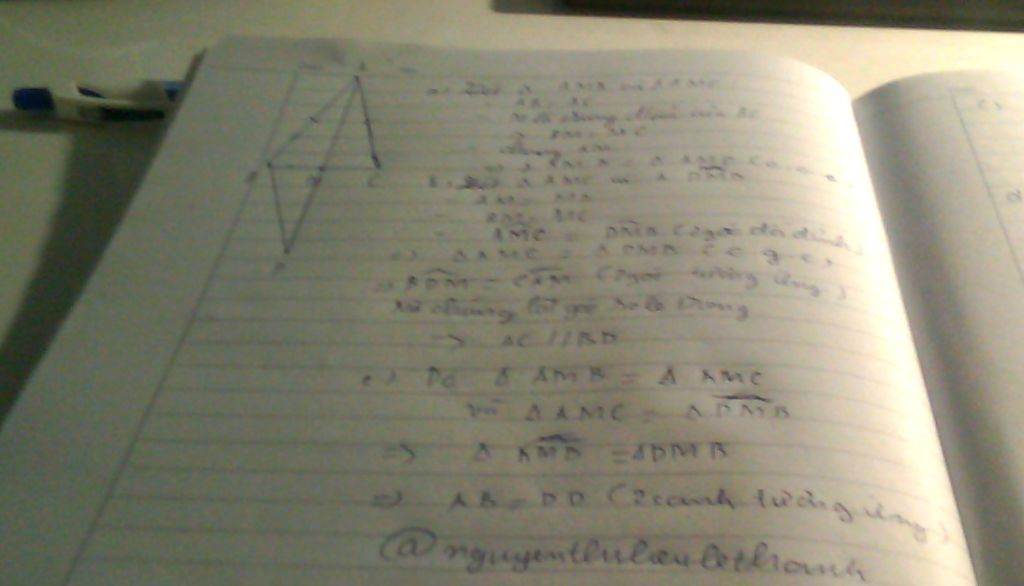 a) Xét Δ AMB và Δ AMC
AB = AC
M là trung điểm của BC
=> BM = MC
chung AM
=> Δ AMB = Δ AMC (c.c.c)
b) Xét Δ AMC và Δ DMB
AM = MD
BM = MC
AMC = DMB (2 góc đối đỉnh)
=> Δ AMC = Δ DMB (c.g.c)
=> BDM = CAM (2 góc tương ứng)
Mà chúng là góc so le trong
=> AC // BD
c) Do Δ AMB = Δ AMC
và Δ AMC = Δ DMB
=> Δ AMB = Δ DMB
=> AB = BD (2 cạnh tương ứng)
@nguyenthilieulethanh
A
B M C
D